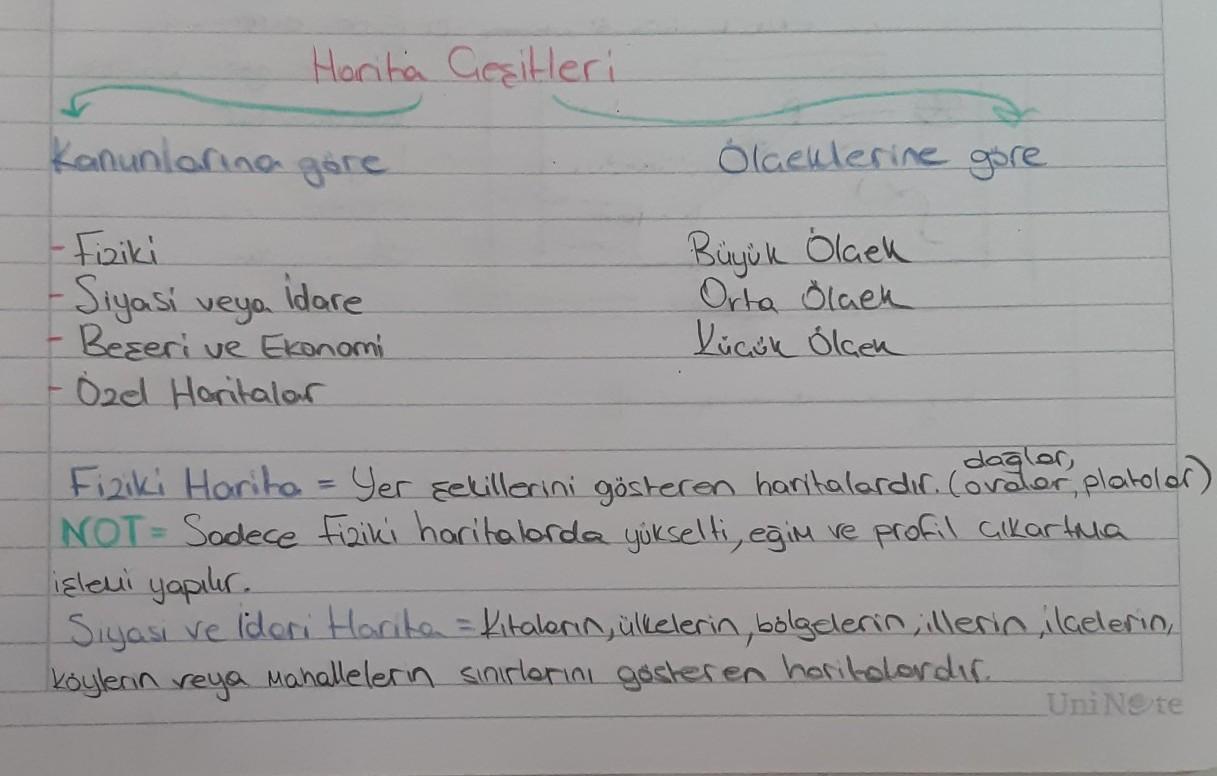 Harita Çeşitleri
Kanunlarına göre
Ölçeklerine göre
- Fiziki
Büyük Ölçek
- Siyasi veya İdare
Orta Ölçek
- Beşeri ve Ekonomi
Küçük Ölçek
- Özel Haritalar
dağlar,
Fiziki Harita = Yer şekillerini gösteren haritalardır. (ovalar, platolar)
NOT = Sadece fiziki haritalarda yükselti, eğim ve profil çıkartma
işlemi yapılır.
Siyasi ve İdari Harita = Kıtaların, ülkelerin, bölgelerin, illerin, ilçelerin,
köylerin veya mahallelerin sınırlarını gösteren haritalardır.
UniNote